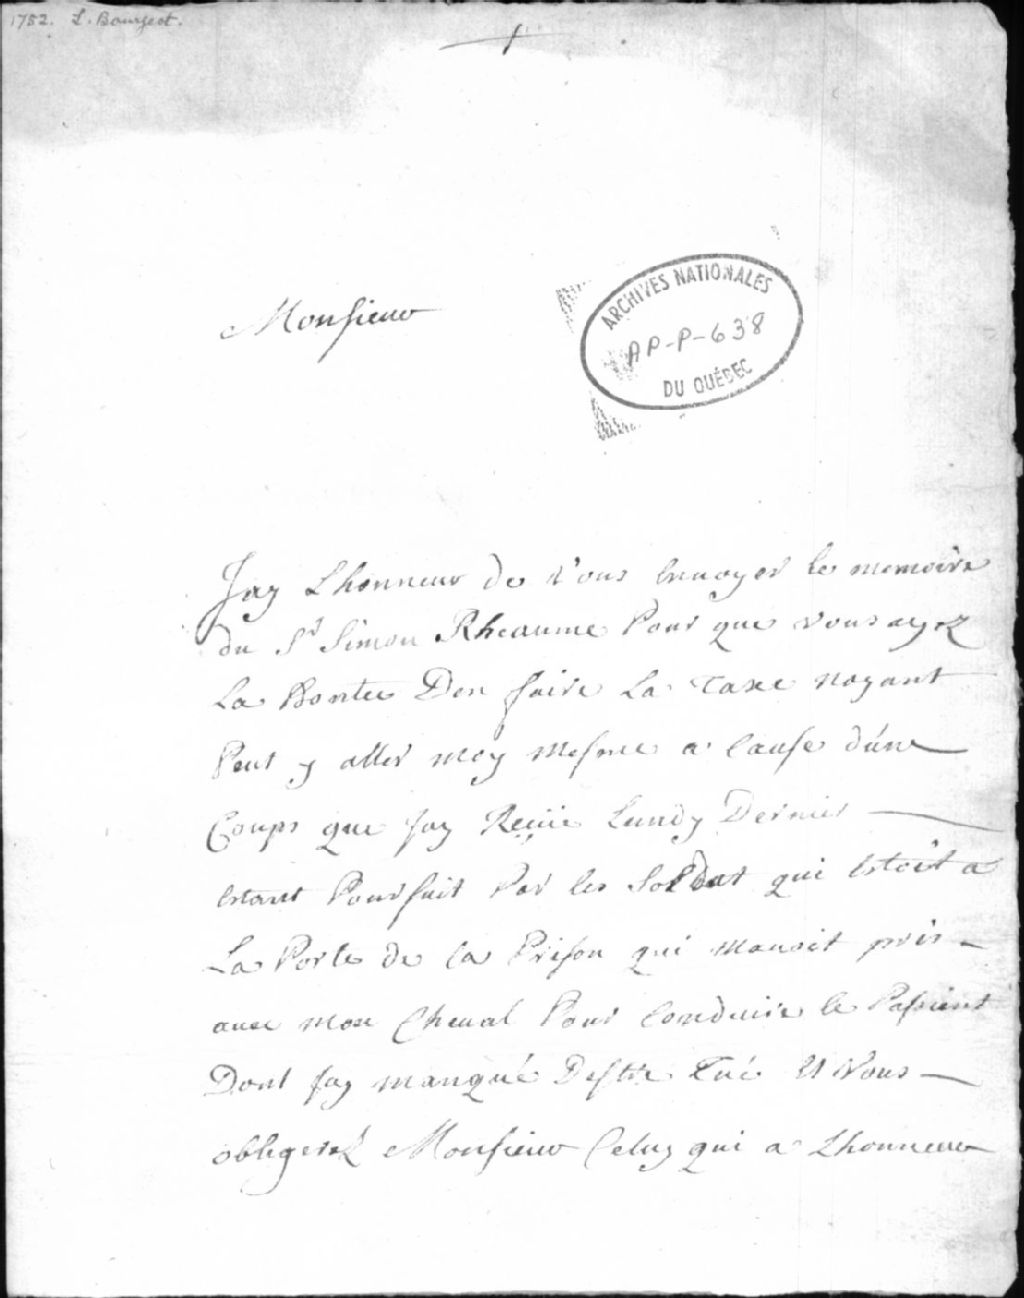 1752. L. Bourgeot.
Monsieur
ARCHIVES NATIONALES
AP-P-638
DU QUÉBEC
Jay Lhonneur de Vous Envoyer le memoire
du Sr Simon Rheaume Pour que vous ayez
La Bontée Den faire La Taxe nayant
Peut y aller moy mesme a Cause d'une
Coups que Jay Reçüe Lundy Dernier
Estant Poursuit Par les Soldat qui Estoit a
La Porte de la Prison qui mauoit pris
auec mon Cheual Pour Conduire le Passient
Dont Jay manqué Destre Tué Et Vous
obligerez Monsieur Celuy qui a Lhonneur